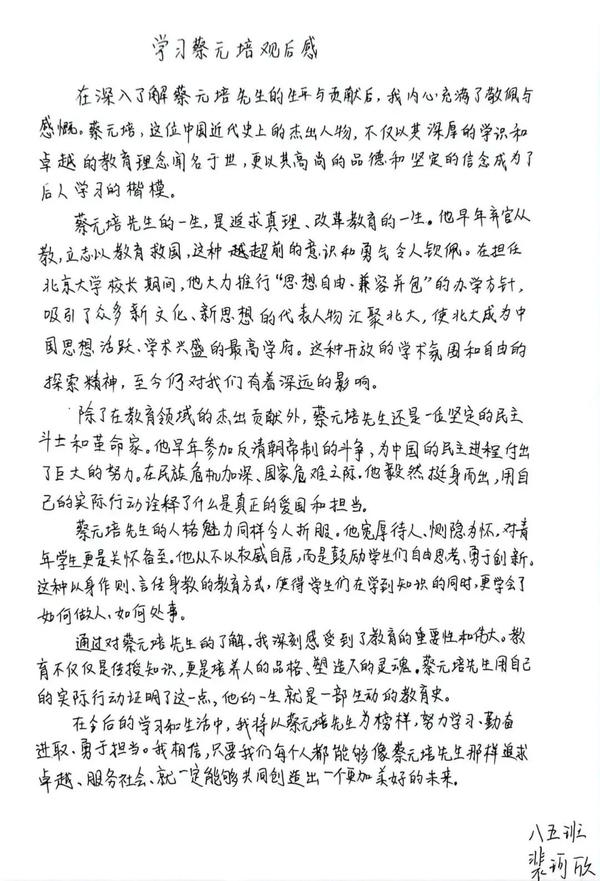 学习蔡元培观后感
在深入了解蔡元培先生的生平与贡献后,我内心充满了敬佩与
感慨。蔡元培,这位中国近代史上的杰出人物,不仅以其深厚的学识和
卓越的教育理念闻名于世,更以其高尚的品德和坚定的信念成为了
后人学习的楷模。
蔡元培先生的一生,是追求真理、改革教育的一生。他早年弃官从
教,立志以教育救国,这种越超前的意识和勇气令人钦佩。在担任
北京大学校长期间,他大力推行“思想自由、兼容并包”的办学方针,
吸引了众多新文化、新思想的代表人物汇聚北大,使北大成为中
国思想活跃、学术兴盛的最高学府。这种开放的学术氛围和自由的
探索精神,至今仍对我们有着深远的影响。
除了在教育领域的杰出贡献外,蔡元培先生还是一位坚定的民主
斗士和革命家。他早年参加反清朝帝制的斗争,为中国的民主进程付出
了巨大的努力。在民族危机加深、国家危难之际,他毅然挺身而出,用自
己的实际行动诠释了什么是真正的爱国和担当。
蔡元培先生的人格魅力同样令人折服。他宽厚待人、恻隐为怀,对青
年学生更是关怀备至。他从不以权威自居,而是鼓励学生们自由思考、勇于创新。
这种以身作则、言传身教的教育方式,使得学生们在学到知识的同时,更学会了
如何做人、如何处事。
通过对蔡元培先生的了解,我深刻感受到了教育的重要性和伟大。教
育不仅仅是传授知识,更是培养人的品格、塑造人的灵魂。蔡元培先生用自己
的实际行动证明了这一点,他的一生就是一部生动的教育史。
在今后的学习和生活中,我将以蔡元培先生为榜样,努力学习、勤奋
进取、勇于担当。我相信,只要我们每个人都能够像蔡元培先生那样追求
卓越、服务社会、就一定能够共同创造出一个更加美好的未来。
八五班
裴珂欣